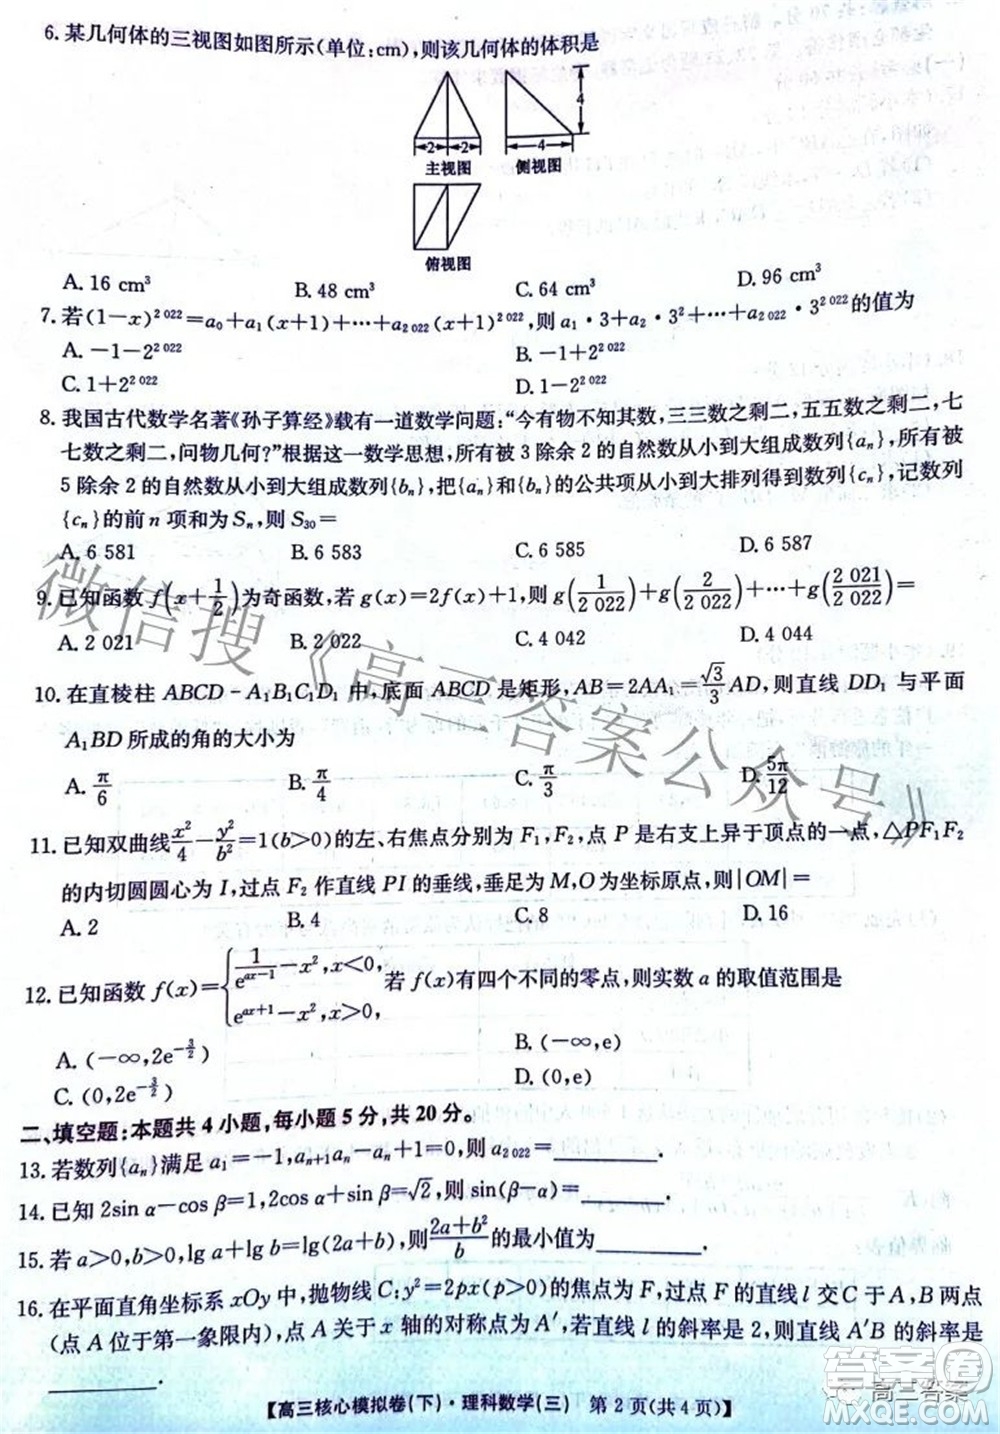 6. 某几何体的三视图如图所示(单位:cm),则该几何体的体积是
4
2 2
4
主视图
侧视图
俯视图
A. 16 cm³ B. 48 cm³ C. 64 cm³ D. 96 cm³
7. 若(1-x)^{2 022}=a₀+a₁(x+1)+⋯+a_{2 022}(x+1)^{2 022},则 a₁·3+a₂·3²+⋯+a_{2 022}·3^{2 022}的值为
A. -1-2^{2 022} B. -1+2^{2 022}
C. 1+2^{2 022} D. 1-2^{2 022}
8. 我国古代数学名著《孙子算经》载有一道数学问题:“今有物不知其数,三三数之剩二,五五数之剩二,七
七数之剩二,问物几何?”根据这一数学思想,所有被 3 除余 2 的自然数从小到大组成数列{aₙ},所有被
5 除余 2 的自然数从小到大组成数列{bₙ},把{aₙ}和{bₙ}的公共项从小到大排列得到数列{cₙ},记数列
{cₙ}的前 n 项和为 Sₙ,则 S₃₀=
A. 6 581 B. 6 583 C. 6 585 D. 6 587
9. 已知函数 f(x+1/2)为奇函数,若 g(x)=2f(x)+1,则 g(1/2 022)+g(2/2 022)+⋯+g(2 021/2 022)=
A. 2 021 B. 2 022 C. 4 042 D. 4 044
10. 在直棱柱 ABCD-A₁B₁C₁D₁ 中,底面 ABCD 是矩形,AB=2AA₁=√3/3 AD,则直线 DD₁ 与平面
A₁BD 所成的角的大小为
A. π/6 B. π/4 C. π/3 D. 5π/12
11. 已知双曲线x²/4-y²/b²=1(b>0)的左、右焦点分别为 F₁,F₂,点 P 是右支上异于顶点的一点,△PF₁F₂
的内切圆圆心为 I,过点 F₂ 作直线 PI 的垂线,垂足为 M,O 为坐标原点,则|OM|=
A. 2 B. 4 C. 8 D. 16
12. 已知函数 f(x)={1/e^{ax-1}-x²,x<0, e^{ax+1}-x²,x>0, 若 f(x)有四个不同的零点,则实数 a 的取值范围是
A. (-∞,2e^{-3/2}) B. (-∞,e)
C. (0,2e^{-3/2}) D. (0,e)
二、填空题:本题共 4 小题,每小题 5 分,共 20 分。
13. 若数列{aₙ}满足 a₁=-1,aₙ₊₁aₙ-aₙ+1=0,则 a_{2 022}=________.
14. 已知 2sin α-cos β=1,2cos α+sin β=√2,则 sin(β-α)=________.
15. 若 a>0,b>0,lg a+lg b=lg(2a+b),则(2a+b²)/b的最小值为________.
16. 在平面直角坐标系 xOy 中,抛物线 C:y²=2px(p>0)的焦点为 F,过点 F 的直线 l 交 C 于 A,B 两点
(点 A 位于第一象限内),点 A 关于 x 轴的对称点为 A′,若直线 l 的斜率是 2,则直线 A′B 的斜率是
________.
【高三核心模拟卷(下)·理科数学(三) 第 2 页(共 4 页)】
微信搜《高三答案公众号》
高三答案
答案圈
MXQE.COM